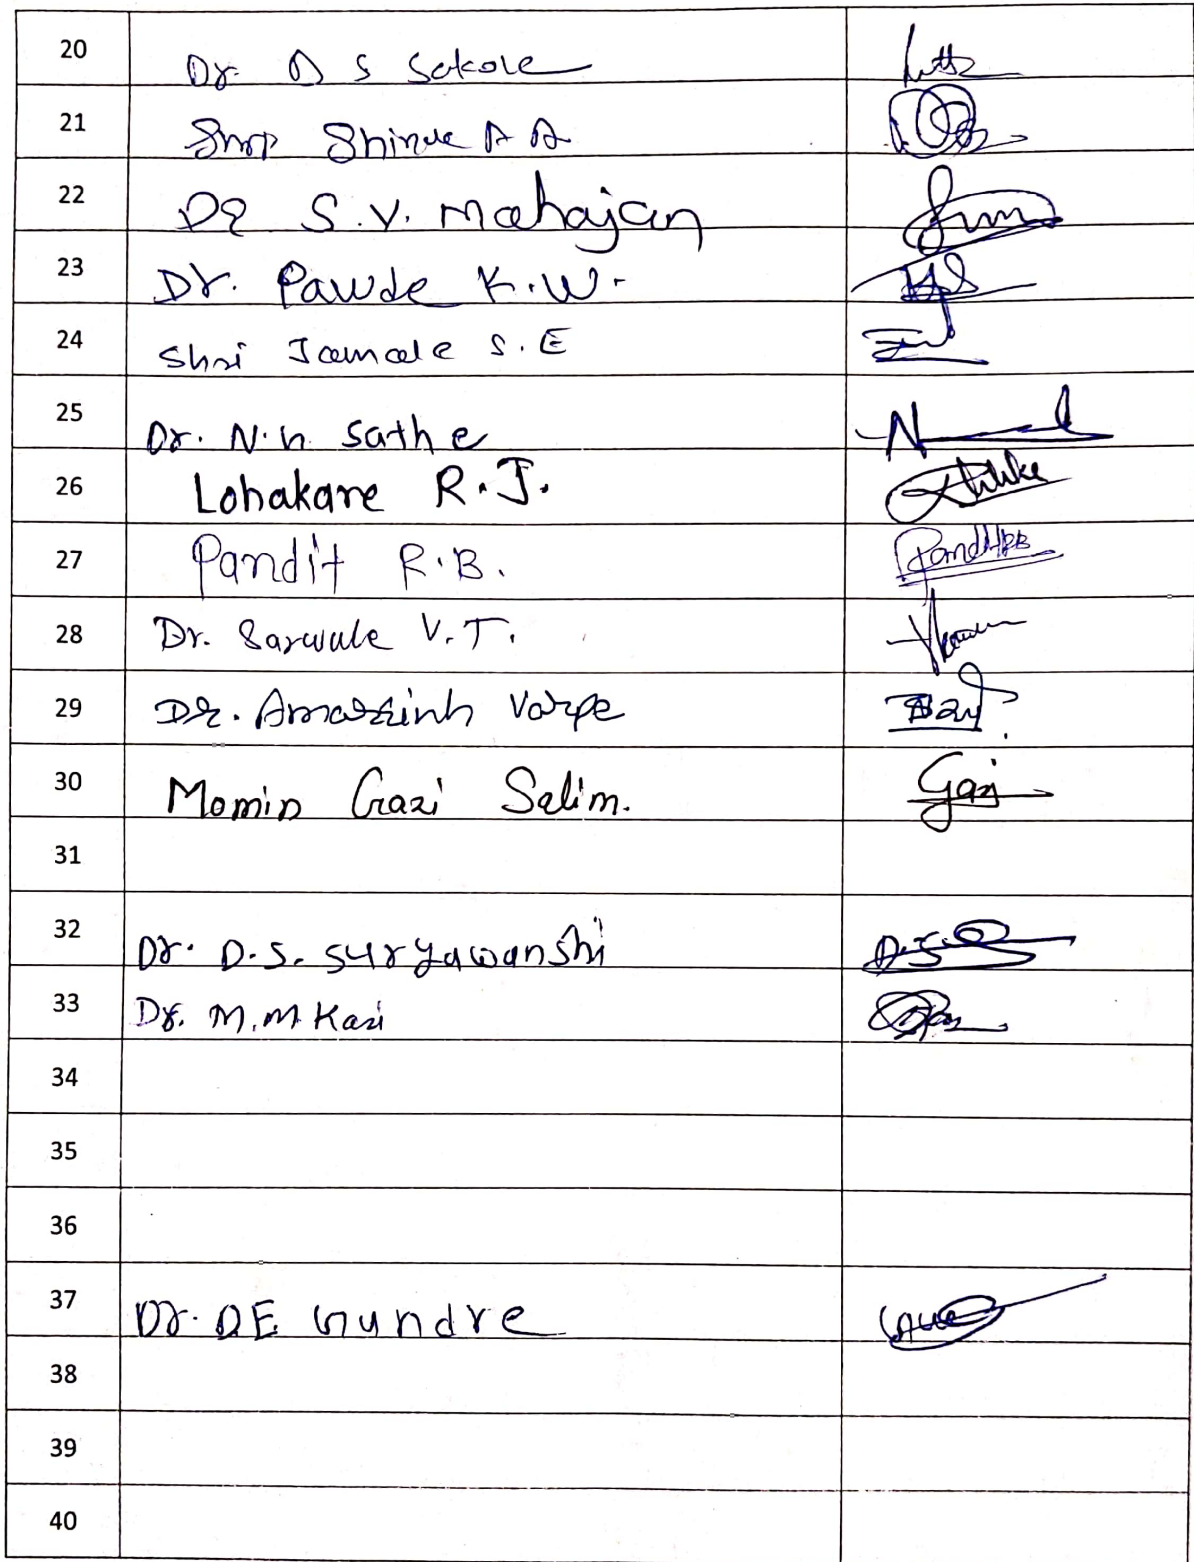 20 Dr. D S Sakole
21 Shinde A A
22 Dr S.V. Mahajan
23 Dr. Pawde K.W.
24 Shri Jamale S.E
25 Dr. N.G. Sathe
26 Lohakare R.J.
27 Pandit R.B. PanditRB
28 Dr. Sarwule V.T.
29 Dr. Amarsinh Varpe
30 Momin Gazi Salim. Gazi
31
32 Dr. D.S. Suryawanshi D.S.
33 Dr. M.M Kazi
34
35
36
37 Dr. D E Gundre
38
39
40